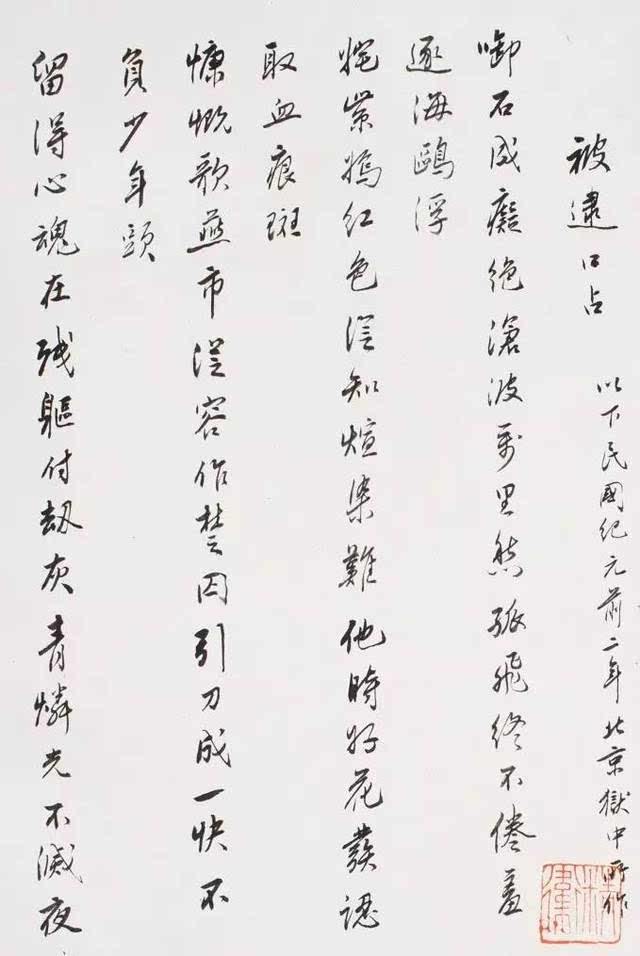 被逮口占 以下民國紀元前二年北京獄中所作
啣石成癡絕滄波萬里愁孤飛終不倦羞
逐海鷗浮
姹紫嫣紅色從知煊染難他時好花發認
取血痕斑
慷慨歌燕市從容作楚囚引刀成一快不
負少年頭
留得心魂在殘軀付劫灰青燐光不滅夜
精衛